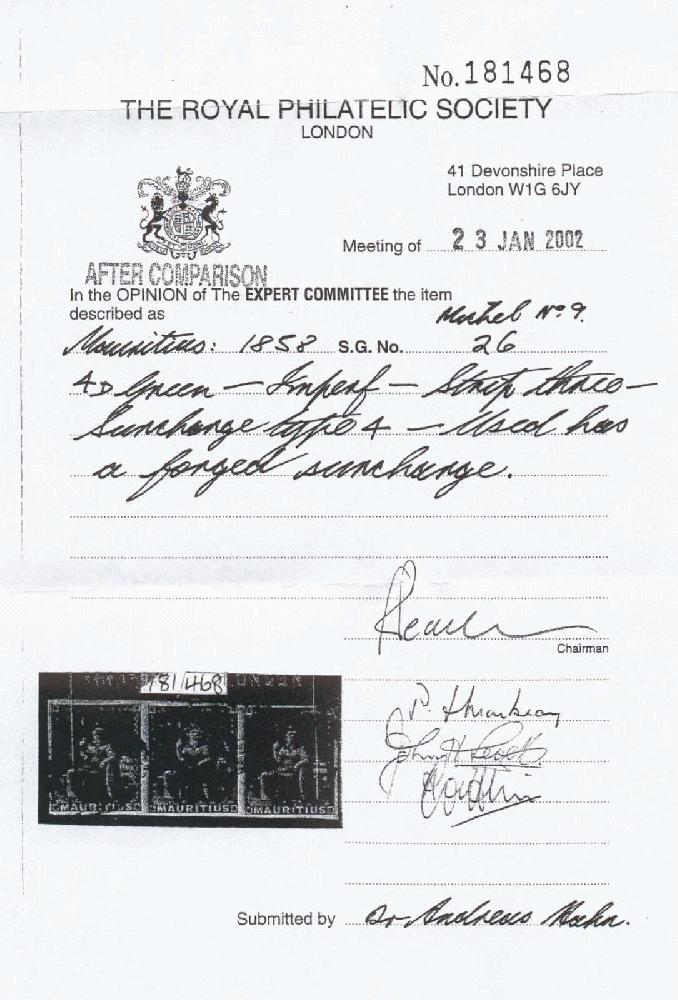 No. 181468
THE ROYAL PHILATELIC SOCIETY
LONDON
41 Devonshire Place
London W1G 6JY
Meeting of 23 JAN 2002
AFTER COMPARISON
In the OPINION of The EXPERT COMMITTEE the item
described as
Michel No 9.
Mauritius: 1858 S.G. No. 26
4D Green - Imperf - Strip three -
Surcharge type 4 - Used has
a forged surcharge.
Chairman
181/468
MAURITIUS MAURITIUS MAURITIUS
Submitted by Dr Andreas Hahn.